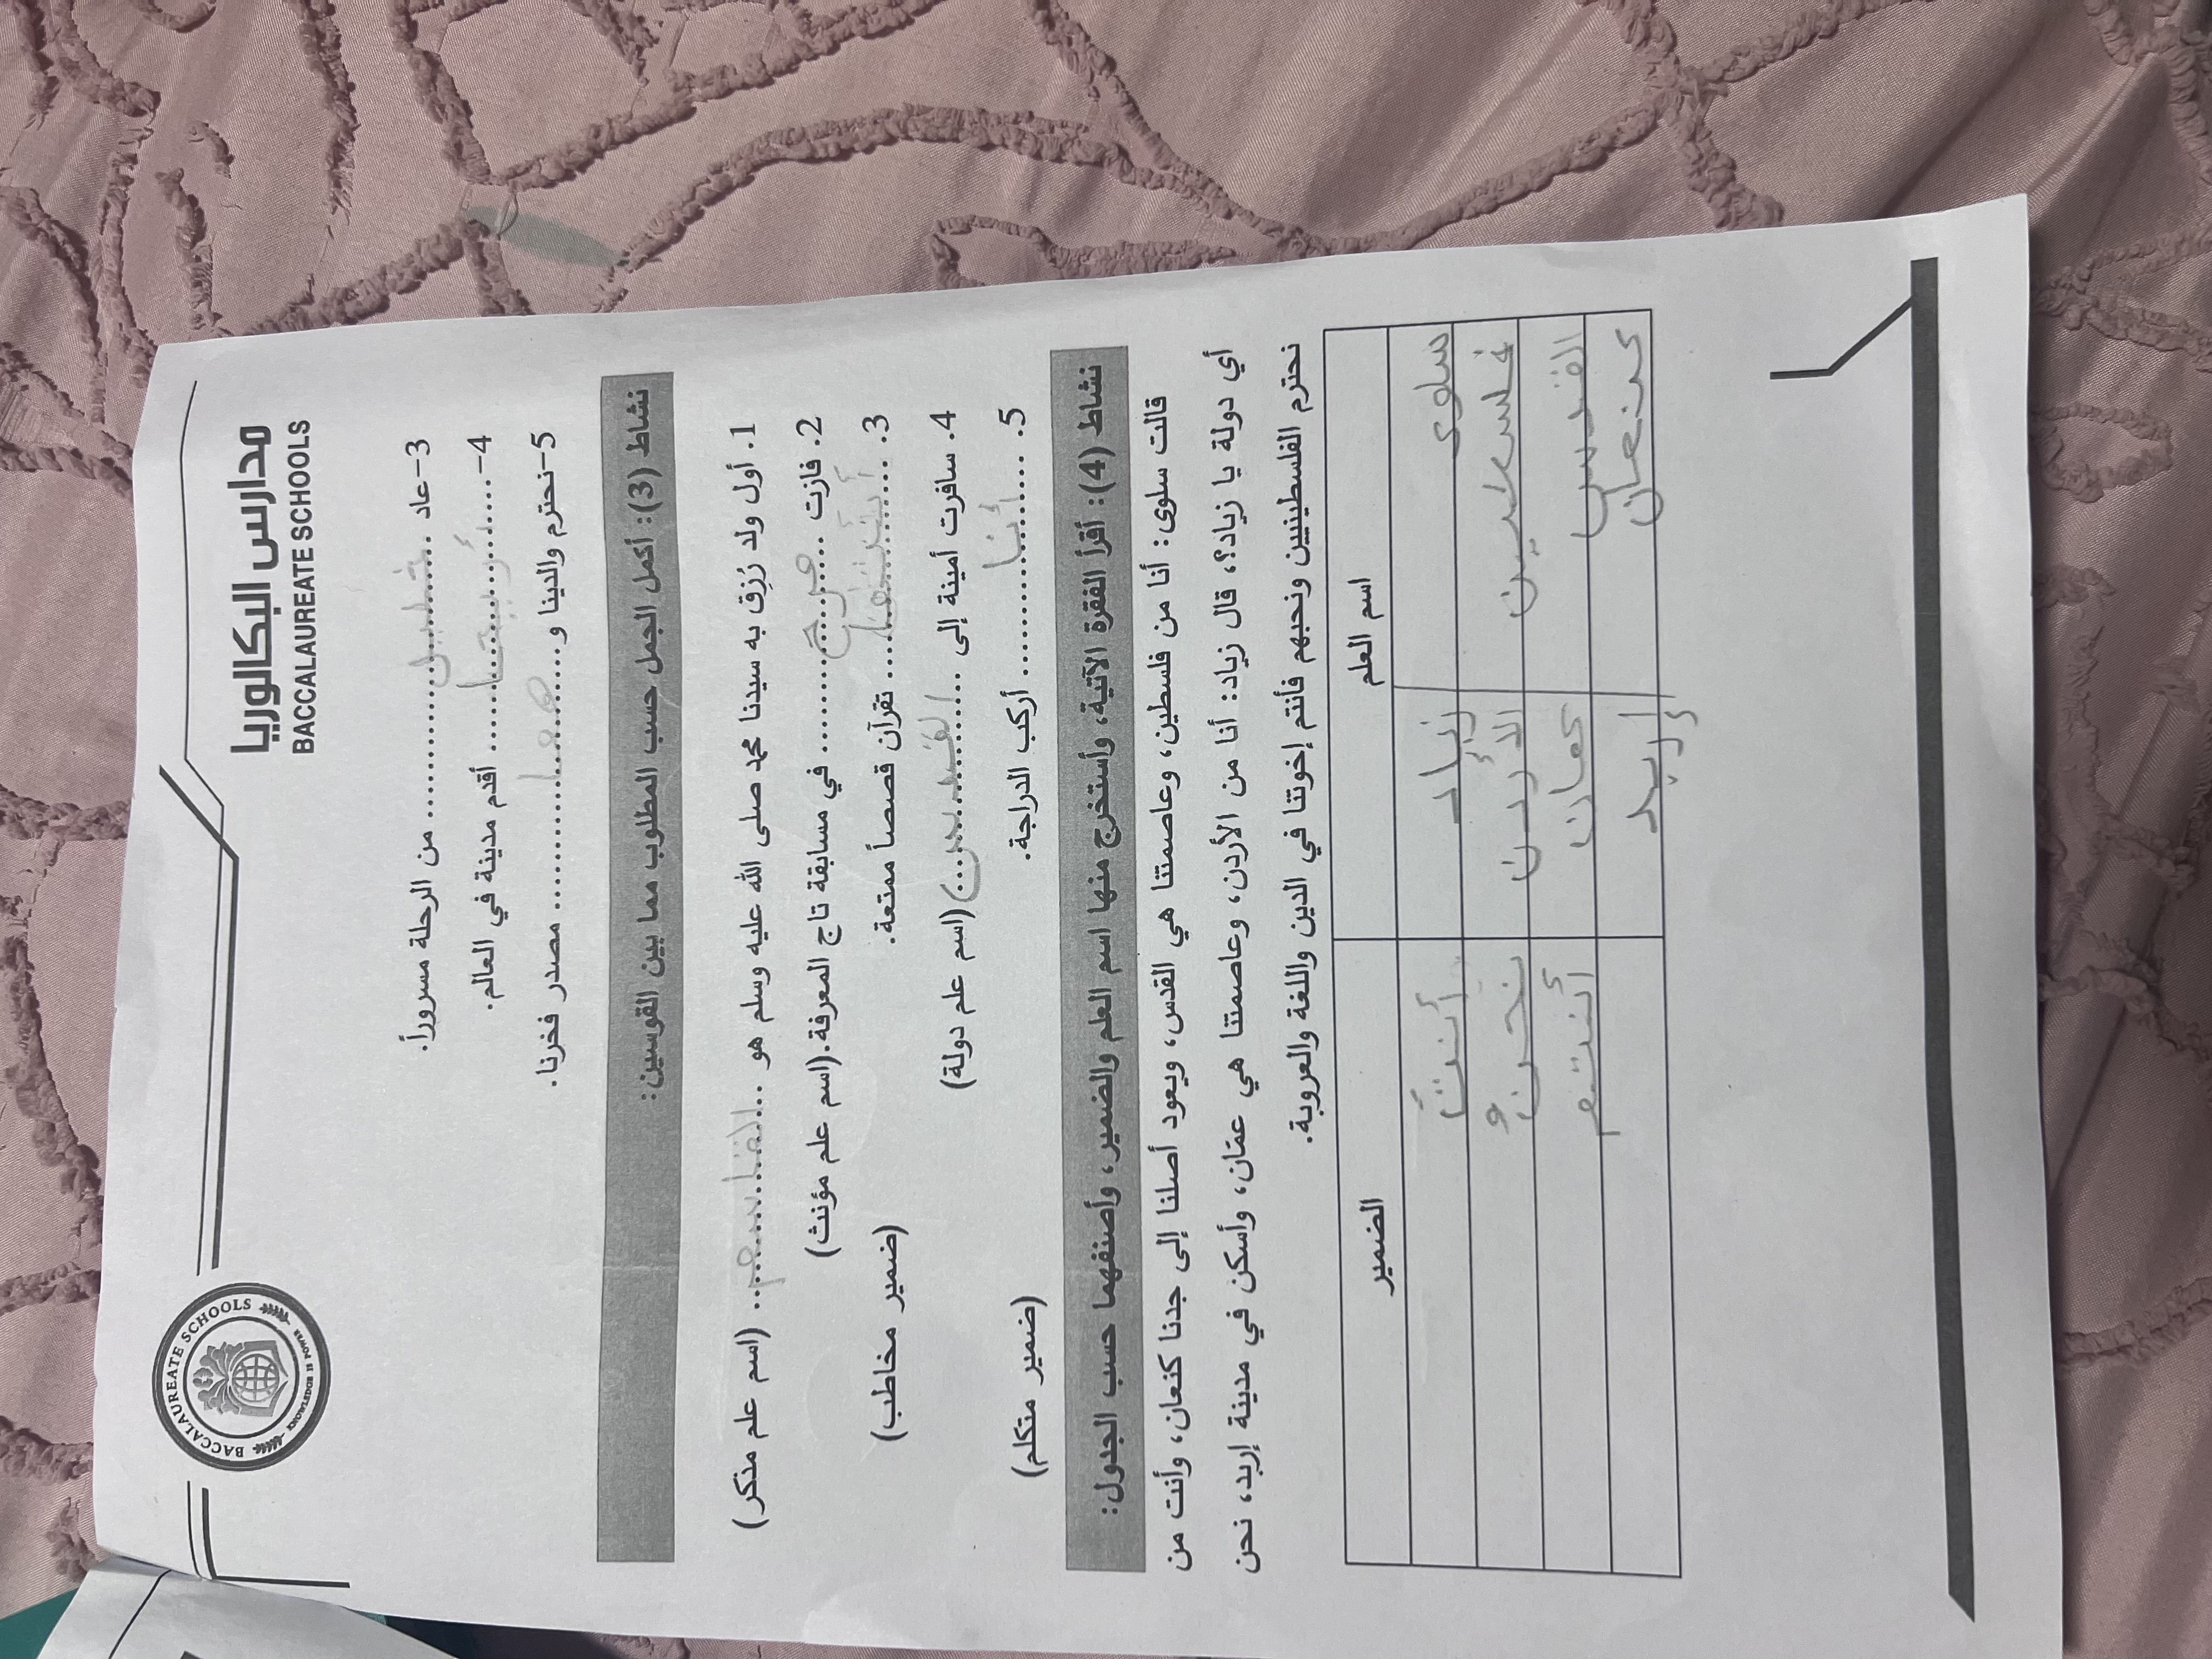 مدارس البكالوريا
BACCALAUREATE SCHOOLS
BACCALAUREATE SCHOOLS
KNOWLEDGE IS POWER
3-عاد ....خليل.... من الرحلة مسروراً.
4- ....أريحا.... أقدم مدينة في العالم.
5-نحترم والدينا و ....هما.... مصدر فخرنا.
نشاط (3): أكمل الجمل حسب المطلوب مما بين القوسين:
1. أول ولد رُزِق به سيدنا محمد صلى الله عليه وسلم هو ....القاسم.... (اسم علم مذكر)
2. فازت ....مرح.... في مسابقة تاج المعرفة.(اسم علم مؤنث)
3. ....أنتما.... تقرآن قصصاً ممتعة. (ضمير مخاطب)
4. سافرت أمينة إلى ........ (اسم علم دولة)
5. ....أنا.... أركب الدراجة. (ضمير متكلم)
نشاط (4): أقرأ الفقرة الآتية، وأستخرج منها اسم العلم والضمير، وأصنفهما حسب الجدول:
قالت سلوى: أنا من فلسطين، وعاصمتنا هي القدس، ويعود أصلنا إلى جدنا كنعان، وأنت من
أي دولة يا زياد؟، قال زياد: أنا من الأردن، وعاصمتنا هي عمّان، وأسكن في مدينة إربد، نحن
نحترم الفلسطينيين ونحبهم فأنتم إخوتنا في الدين واللغة والعروبة.
اسم العلم الضمير
سلوى زياد أنتَ
فلسطين الأردن نحنُ
القدس عمان أنتم
كنعان إربد